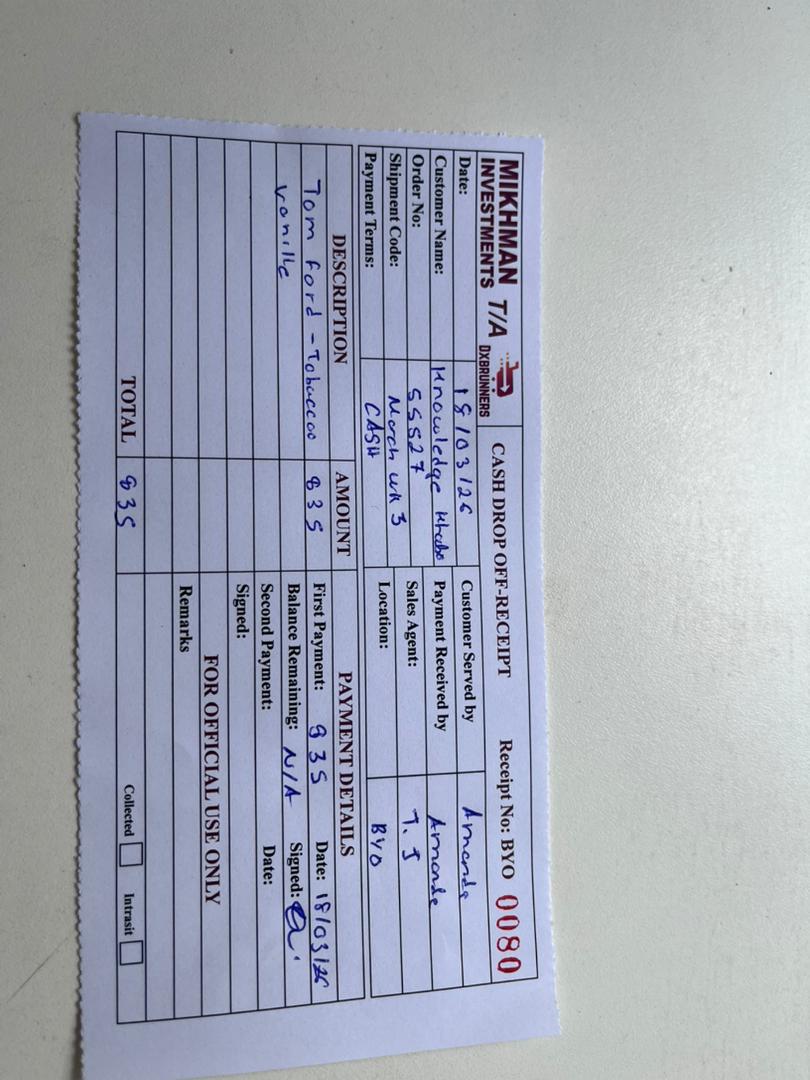 MIKHMAN T/A DXBRUNNERS
INVESTMENTS
CASH DROP OFF-RECEIPT
Receipt No: BYO 0080
Date: 18/03/26
Customer Name: Knowledge
Order No: 55527
Shipment Code: March WK 3
Payment Terms: CASH
Customer Served by Amanda
Payment Received by Amanda
Sales Agent: T.J
Location: BYO
DESCRIPTION AMOUNT
Tom Ford - Tobaccoo 835
Vanille
TOTAL 835
PAYMENT DETAILS
First Payment: 835 Date: 18/03/26
Balance Remaining: N/A Signed:
Second Payment: Date:
Signed:
FOR OFFICIAL USE ONLY
Remarks
Collected Intrasit